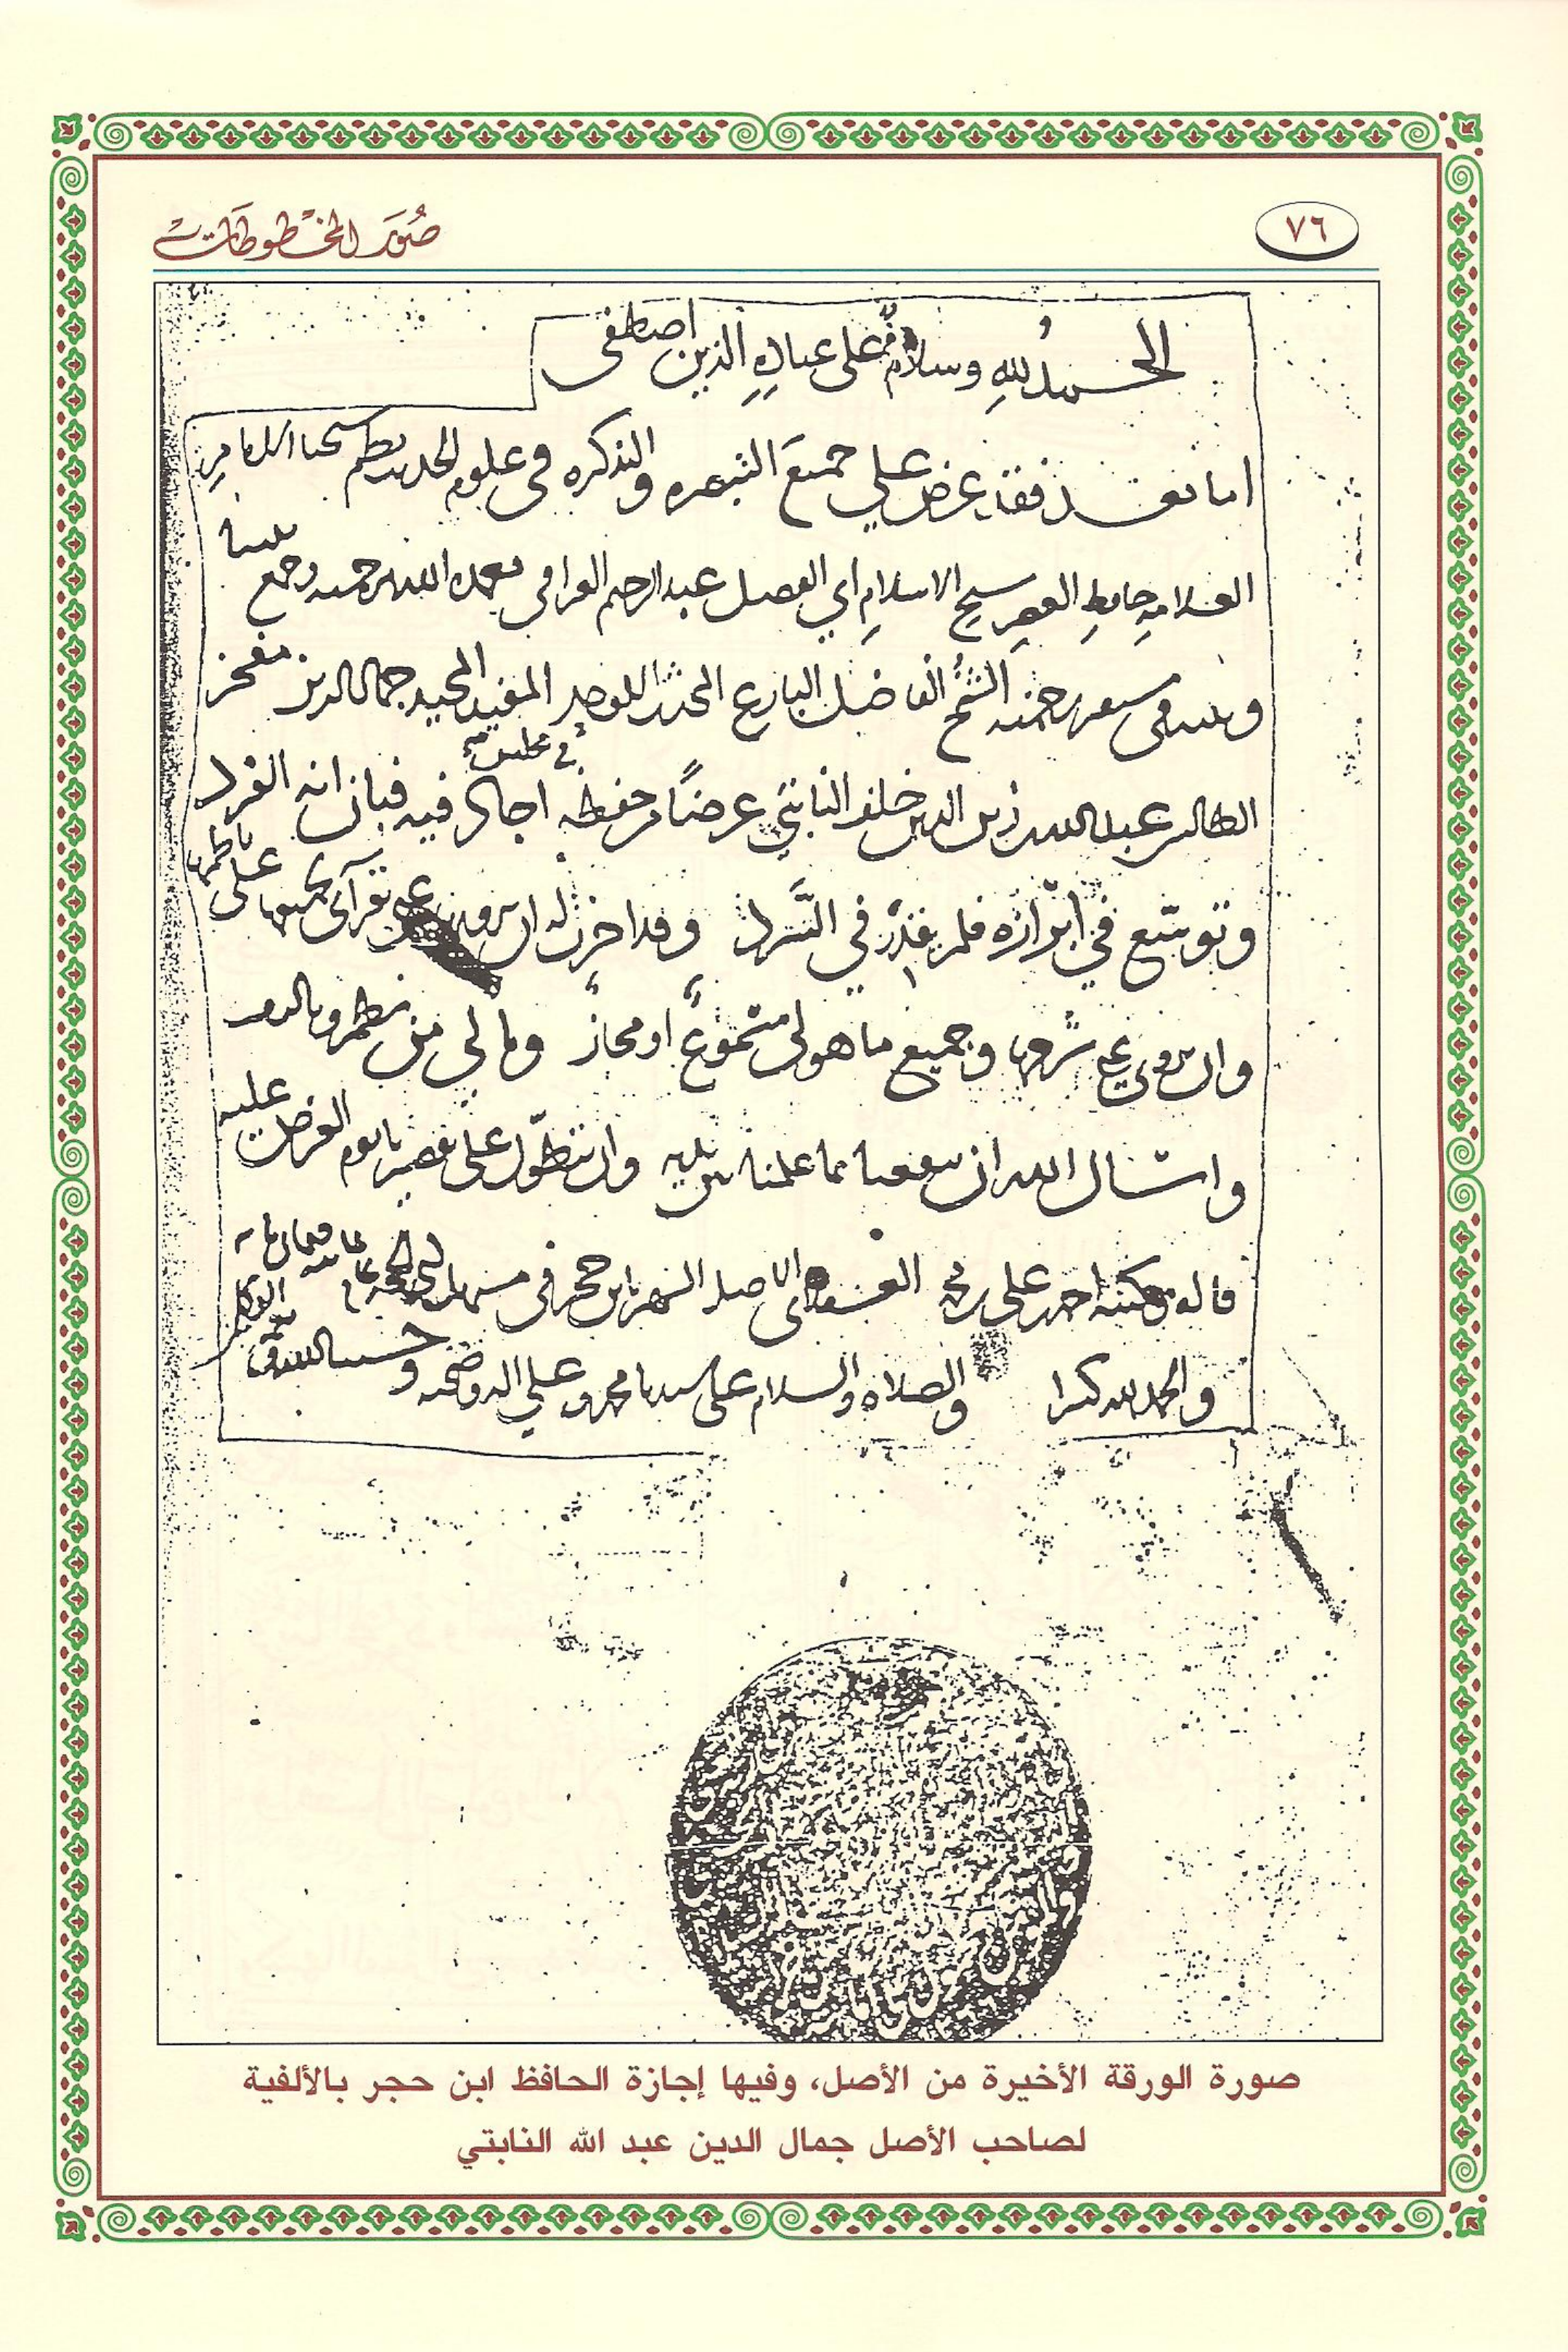 ٧٦
صور المخطوطات
الحمد لله وسلام على عباده الذين اصطفى
اما بعد فقد عرض علي جميع التبصره والتذكره في علوم الحديث نظم شيخنا الامام
العلامه حافظ العصر شيخ الاسلام ابي الفضل عبد الرحيم العراقي تغمده الله برحمته وجمع بيننا
وبينه في مستقر رحمته الشيخ الفاضل البارع المحدث الاوحد المفيد المجيد جمال الدين مفخر
في مجلس
الطالبين عبد الله بن زين الدين خلف النابتي عرضا من حفظه اجاد فيه فبان انه الفرد
وتوسع في ابرازه فلم يقدر في السرد وقد اجزت له ان يرويه عني بقرآتي على ناظمها
وان يروي عني شرحها وجميع ما هو لي مسموع او مجاز وما لي من نظم وتاليف
واسال الله ان ينفعنا بما علمنا وان يتطول على العرض عليه
قاله وكتبه احمد بن علي بن محمد العسقلاني الاصل الشهير بابن حجر في
والحمد لله كثيرا والصلاه والسلام على سيدنا محمد وعلى اله وصحبه وحسبنا الله ونعم الوكيل
صورة الورقة الأخيرة من الأصل، وفيها إجازة الحافظ ابن حجر بالألفية
لصاحب الأصل جمال الدين عبد الله النابتي